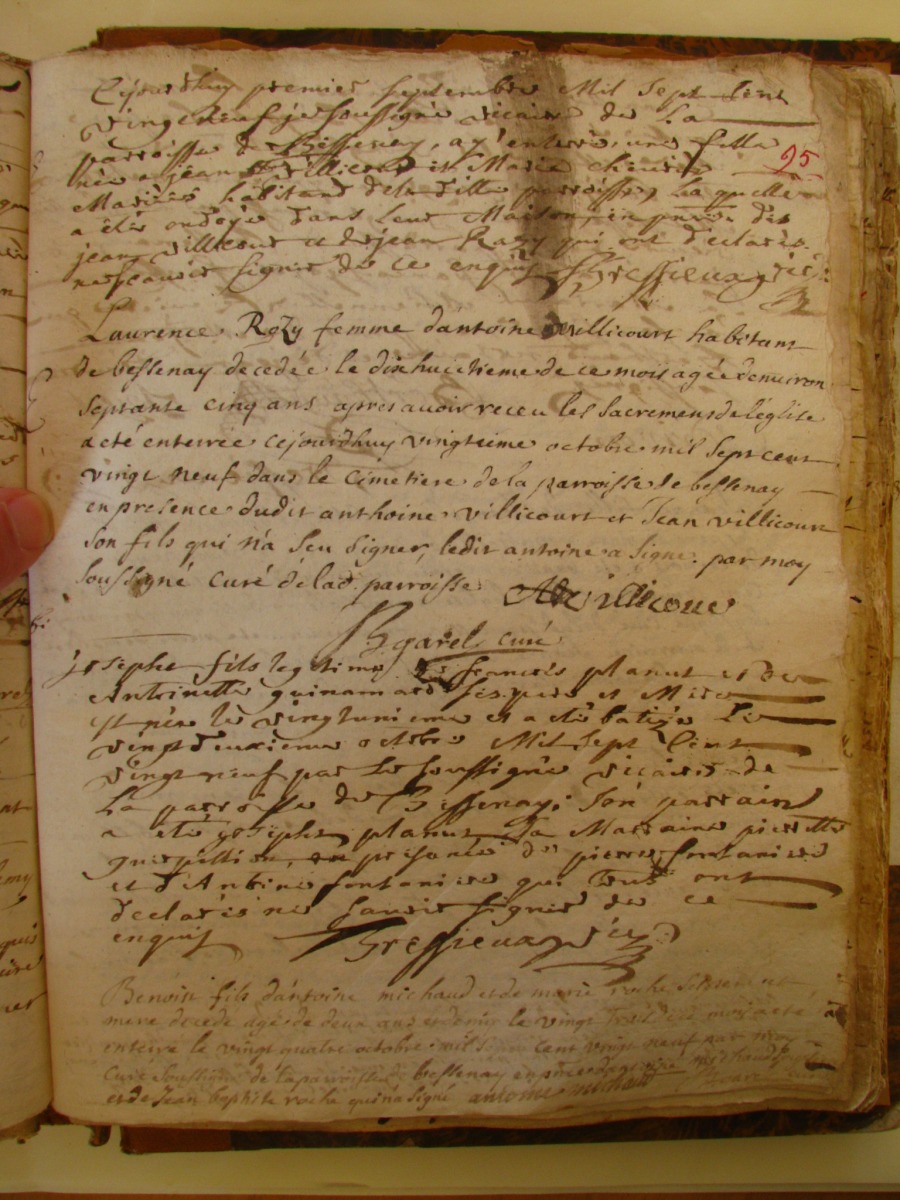 Cejourdhuy premier septembre Mil Sept Cent
vingt neuf je soussigné vicaire de La
parroisse de Bessenay, ay enterré une fille
née a jean villicout et Marie
Mariés habitand dela ditte parroisse, La quelle
a été ondoye dans leur Maison, en de
jean villicout et de jean Razy qui ont declarés
ne scauoir signer de ce enquis Gressieux vic:
95
Laurence Rozy femme dantoine villicourt habitant
de bessenay decedée le dixhuictieme de ce mois agée denuiron
septante cinq ans apres auoir receu les sacremens de léglise
a eté enterrée cejourdhuy vingtieme octobre mil sept cent
vingt neuf dans le cimetiere de la parroisse de bessenay
en presence dudit anthoine villicourt et Jean villicourt
son fils qui n'a seu signer, ledit antoine a signe par moy
soussigné curé de lad. parroisse A Villicout
Bgarel curé
josephe fils legitime de francois planut et de
Antoinette guinamard ses pere et Mere
est née le vingtunieme et a eté batizé Le
vingtdeuxieme octobre Mil Sept Cent
vingt neuf par Le soussigné vicaire de
La parroisse de Bessenay; Son parrain
a eté joseph planut Sa Marraine pierrette
en presence de pierre fontaniere
et d'Antoine fontaniere qui tous ont
declarés ne sauoir signer de ce
enquis Gressieux vic
Benoist fils dantoine michaud et de marie roche
mere decede agé de deux ans et demi le vingt trois du mois a eté
enterré le vingt quatre octobre mil sept cent vingt neuf par moy
curé soussigné de la parroisse de bessenay en presence michaud
et de Jean baptiste roche qui n'a signé antoine michaud